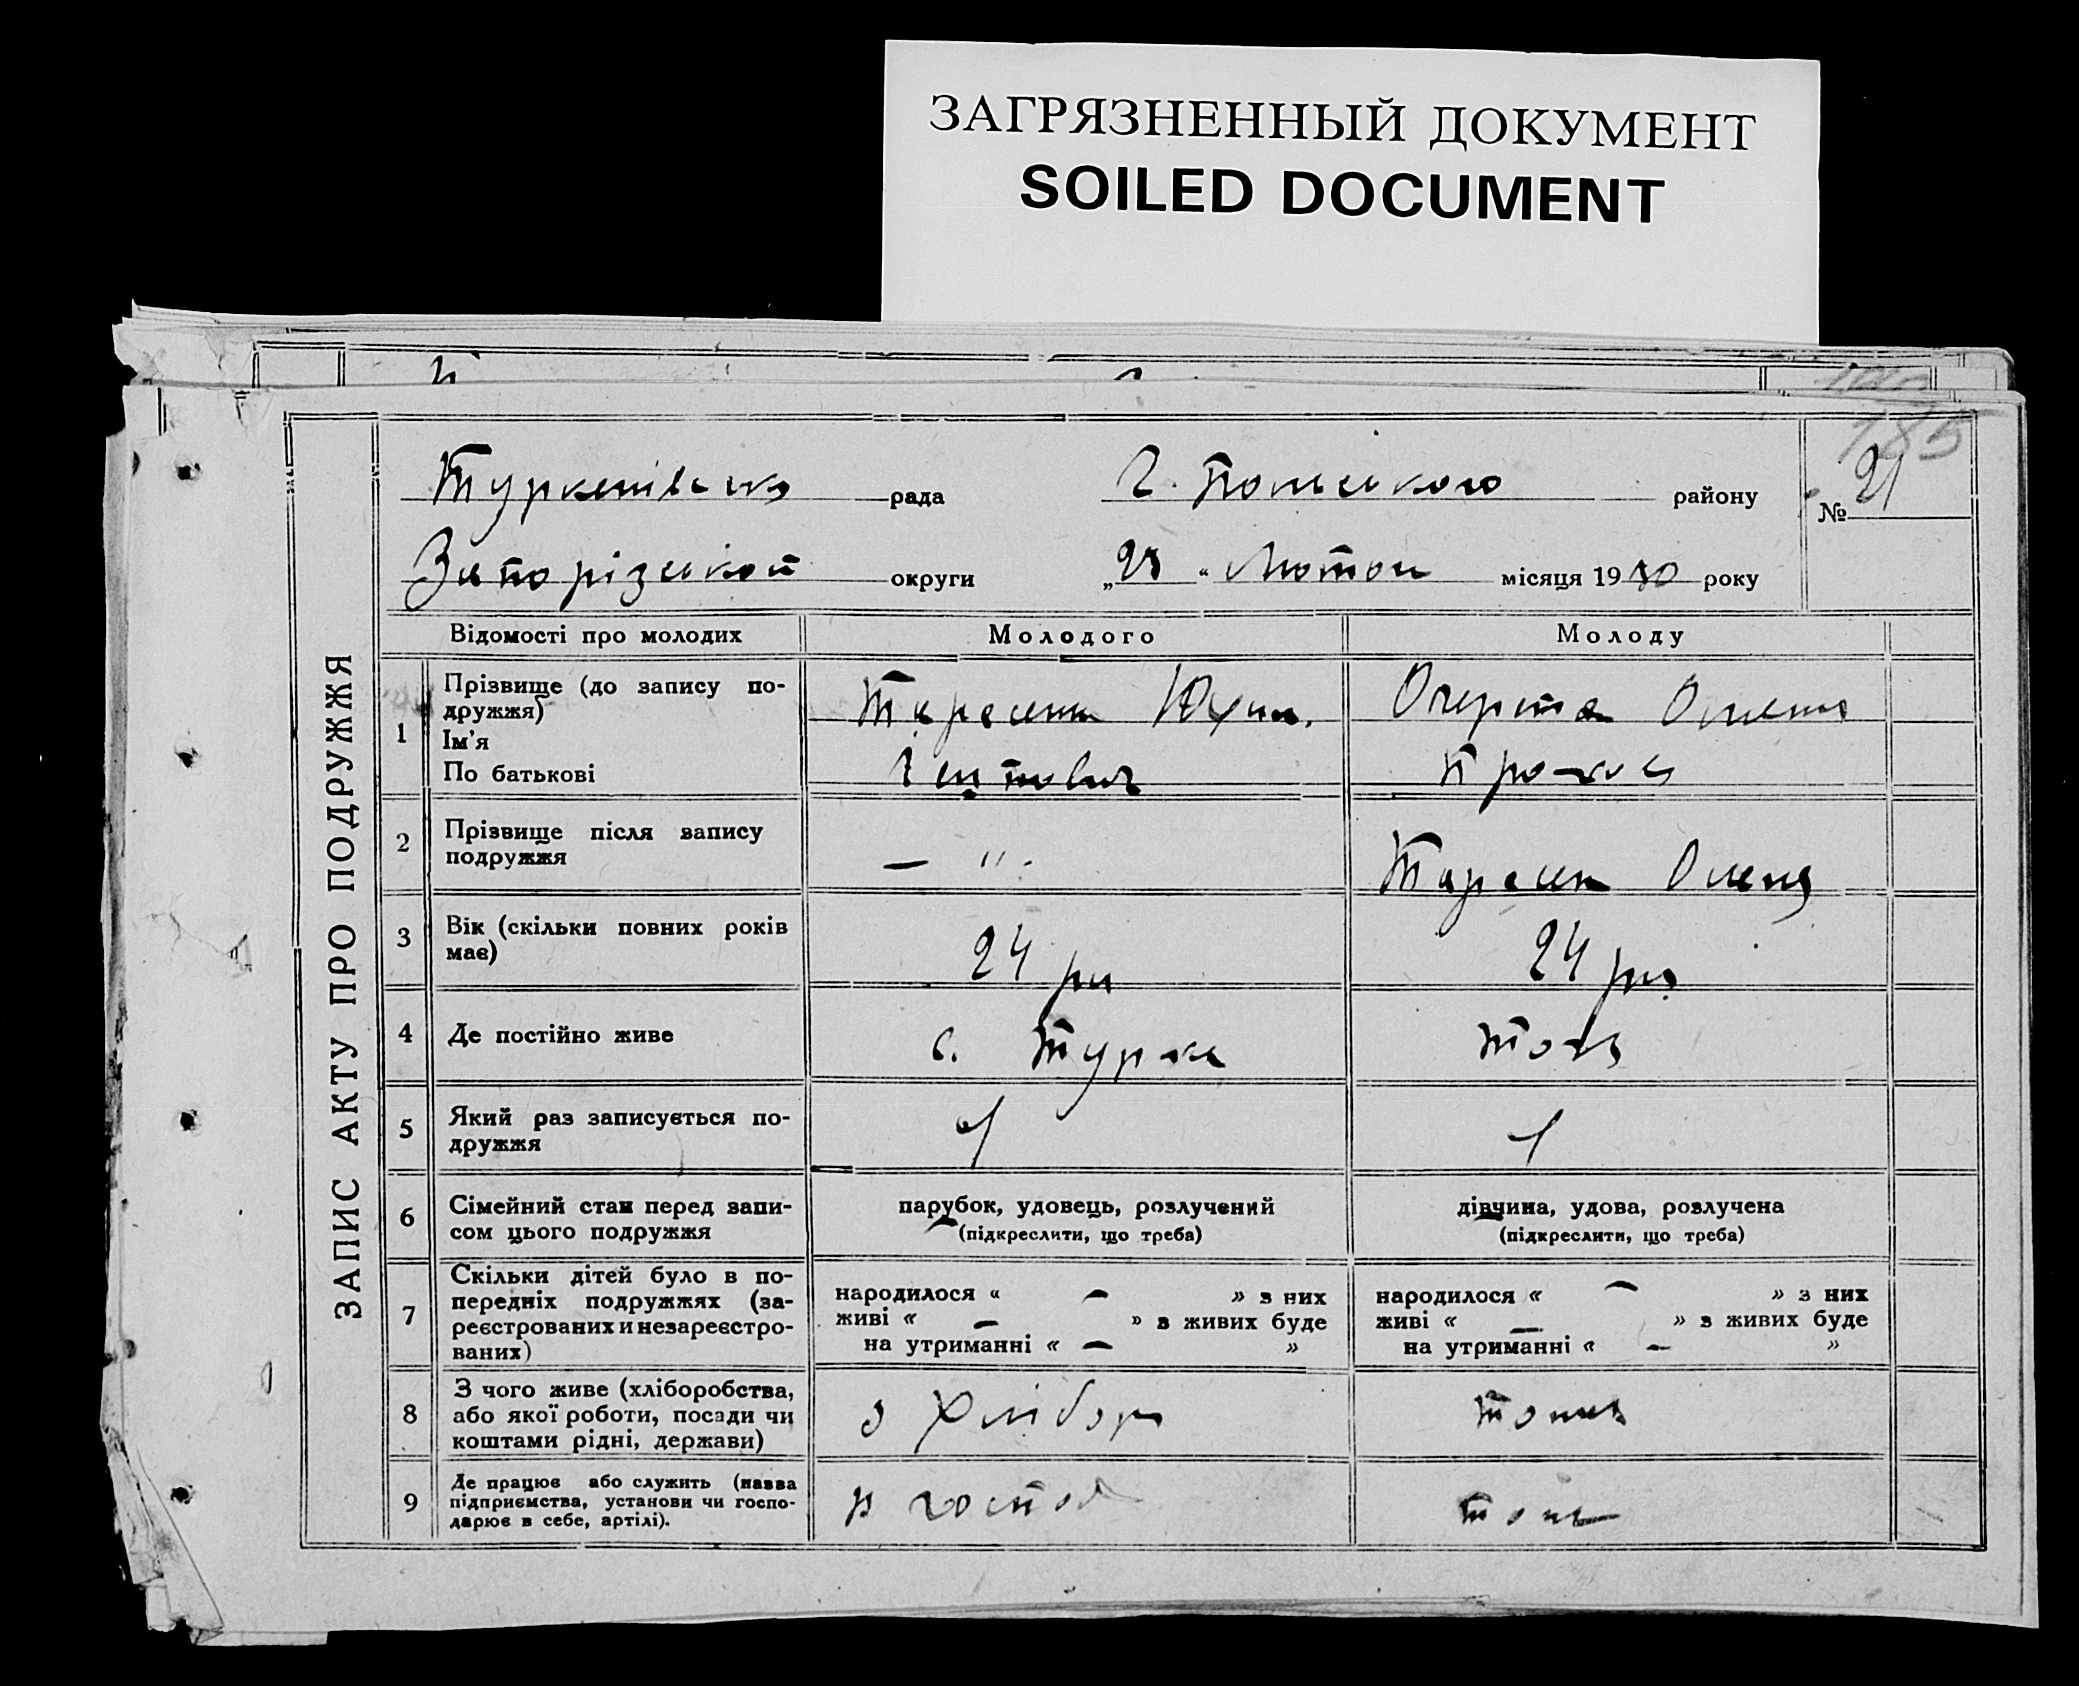 ЗАГРЯЗНЕННЫЙ ДОКУМЕНТ
SOILED DOCUMENT
185
рада
Г. Польського району
№ 21
Запорізької округи
"28" Лютого місяця 1930 року
ЗАПИС АКТУ ПРО ПОДРУЖЖЯ
Відомості про молодих Молодого Молоду
1 Прізвище (до запису подружжя) Ім'я По батькові
Тарасенко Юхим
Олена
2 Прізвище після запису подружжя
— " .
Тарасенко Олена
3 Вік (скільки повних років має)
24 рік
24 рік
4 Де постійно живе
с.
5 Який раз записується подружжя
1
1
6 Сімейний стан перед записом цього подружжя
парубок, удовець, розлучений
(підкреслити, що треба)
дівчина, удова, розлучена
(підкреслити, що треба)
7 Скільки дітей було в попередніх подружжях (зареєстрованих и незареєстрованих)
народилося « — » з них
живі « — » з живих буде
на утриманні « — »
народилося « — » з них
живі « — » з живих буде
на утриманні « — »
8 З чого живе (хліборобства, або якої роботи, посади чи коштами рідні, держави)
з хлібор
9 Де працює або служить (назва підприємства, установи чи господарює в себе, артілі).